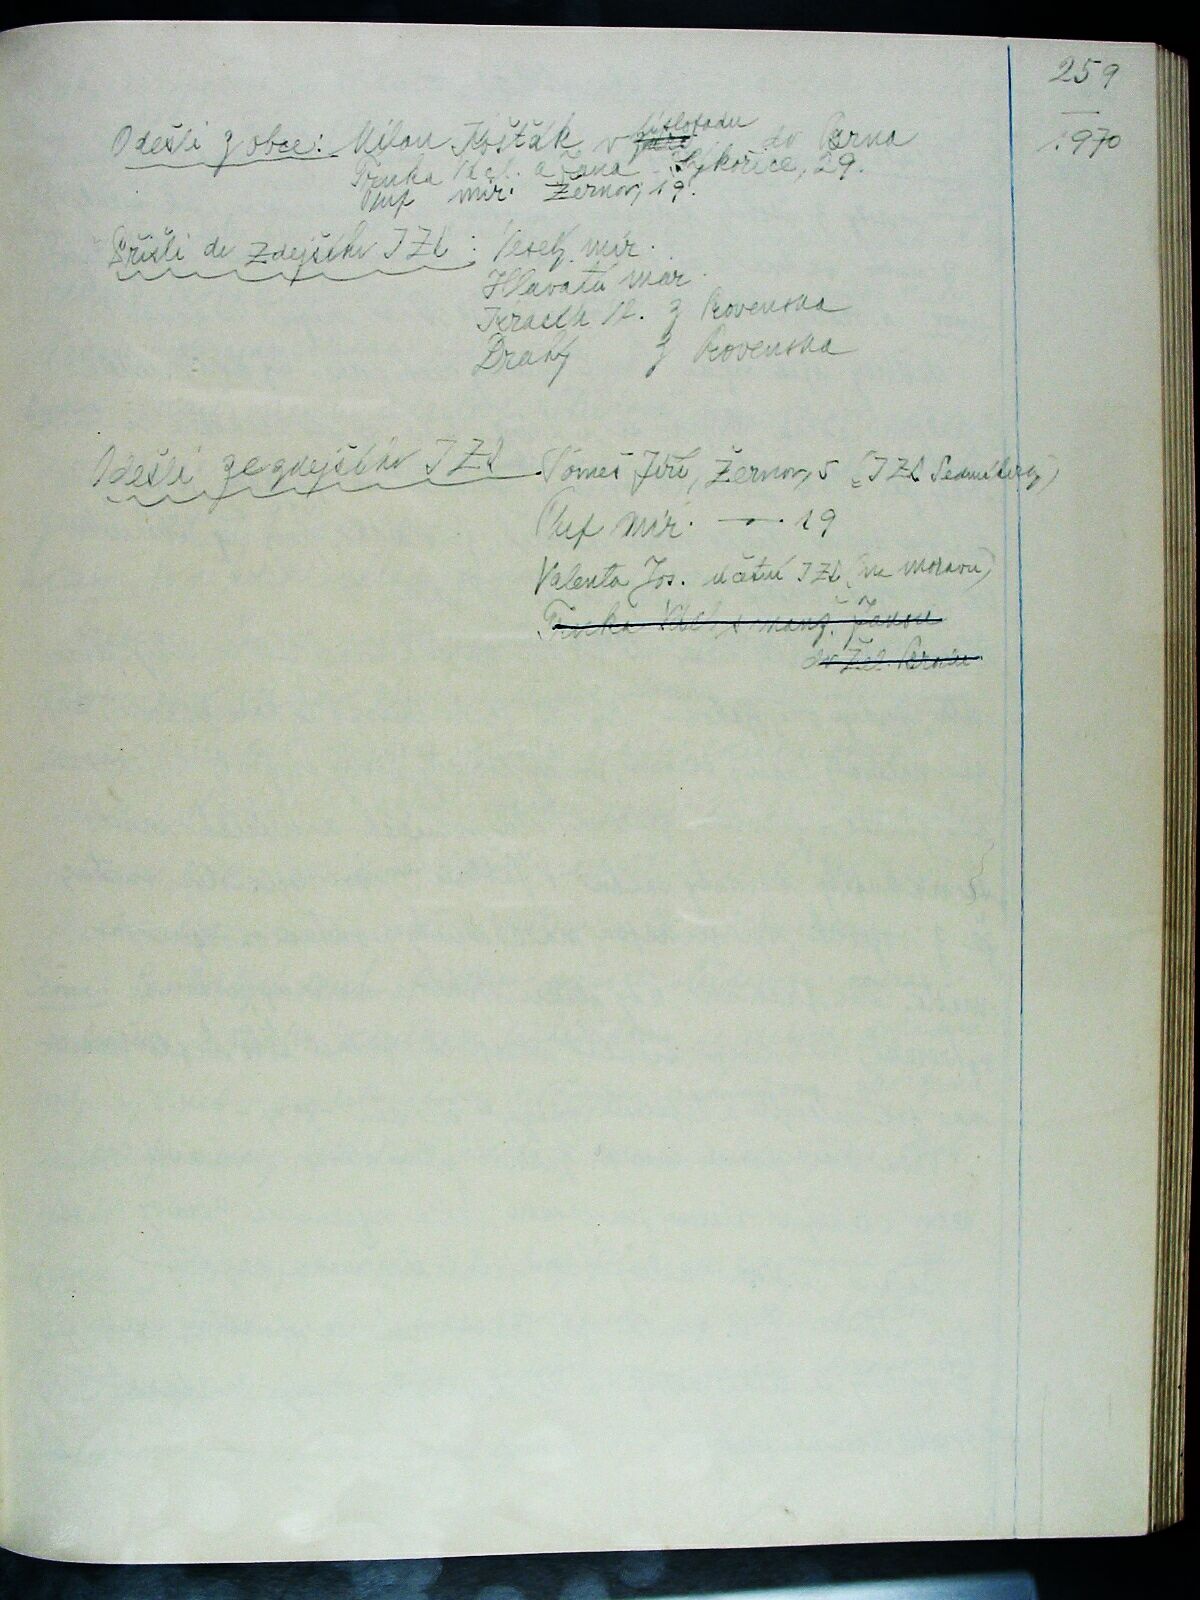 259
1970
Odešli z obce: Milan Košťák v listopadu do Brna
Trnka Vl. a Jana Sýkořice, 29.
Puf Mir. Žernov, 19.
Přišli do zdejšího JZD: Veselý mir.
Hlavatá mar.
z Rovenska
Drahý z Rovenska
Odešli ze zdejšího JZD Tomeš Jiří, Žernov, 5 (JZD Sedmihorky)
Puf mir. —"— 19
Valenta Jos. účetní JZD (na moravu)
Trnka s manž. Janou
do Žel. Brodu